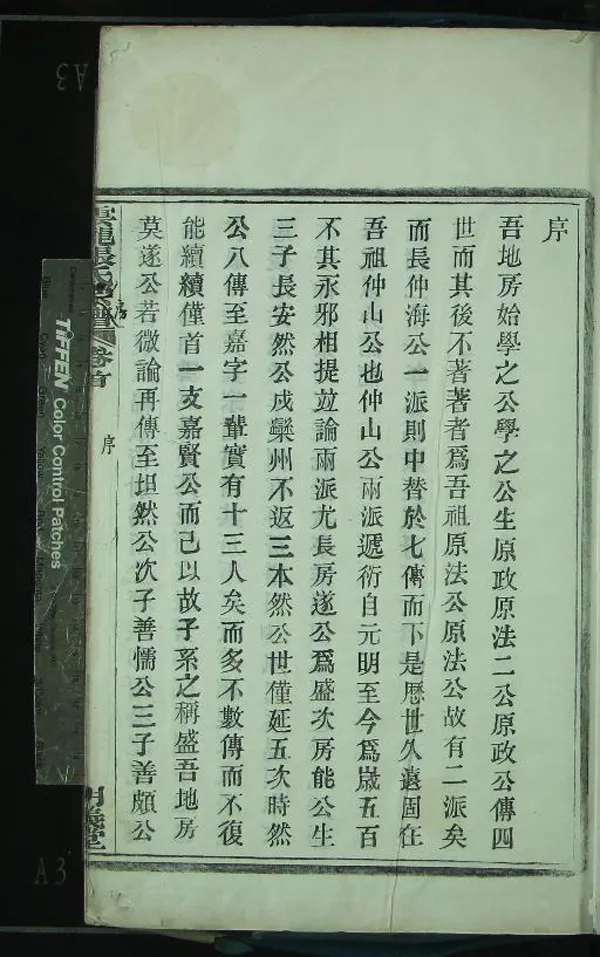 序
吾地房始學之公學之公生原政原法二公原政公傳四
世而其後不著著者爲吾祖原法公原法公故有二派矣
而長仲海公一派則中替於七傳而下是厯世久遠固在
吾祖仲山公也仲山公兩派遞衍自元明至今爲歲五百
不其永邪相提竝論兩派尤長房遂公爲盛次房能公生
三子長安然公戍欒州不返三本然公世僅延五次時然
公八傳至嘉字一輩實有十三人矣而多不數傳而不復
能續續僅首一支嘉賢公而己以故子系之稱盛吾地房
莫遂公若微論再傳至坦然公次子善懦公三子善頗公
張氏
卷首
序
月義堂
TIFFEN Color Control Patches
A3
A3